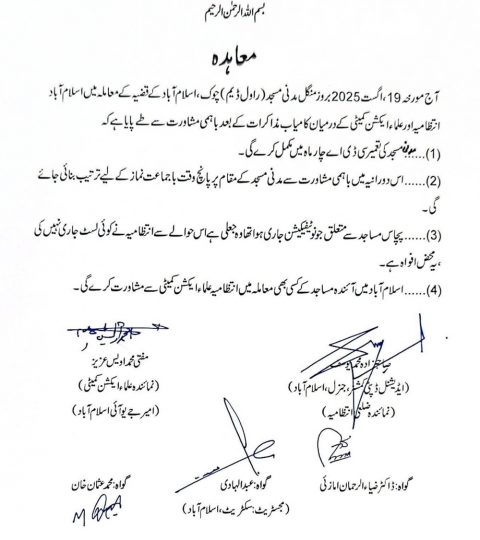 بسم اللہ الرحمٰن الرحیم
معاہدہ
آج مورخہ 19، اگست 2025 بروز منگل مدنی مسجد (راول ڈیم) چوک، اسلام آباد کے قضیہ کے معاملہ میں اسلام آباد
انتظامیہ اور علماء ایکشن کمیٹی کے درمیان کامیاب مذاکرات کے بعد باہمی مشاورت سے طے پایا ہے کہ
(1)...... مسجد کی تعمیر سی ڈی اے چار ماہ میں مکمل کرے گی۔
(2)...... اس دورانیہ میں باہمی مشاورت سے مدنی مسجد کے مقام پر پانچ وقت با جماعت نماز کے لیے ترتیب بنائی جائے
گی۔
(3)...... پچاس مساجد سے متعلق جو نوٹیفکیشن جاری ہوا تھا وہ جعلی ہے اس حوالے سے انتظامیہ نے کوئی لسٹ جاری نہیں کی
، یہ محض افواہ ہے۔
(4)...... اسلام آباد میں آئندہ مساجد کے کسی بھی معاملہ میں انتظامیہ علماء ایکشن کمیٹی سے مشاورت کرے گی۔
صاحبزادہ محمد یوسف
مفتی محمد اویس عزیز
(ایڈیشنل ڈپٹی کمشنر، جنرل، اسلام آباد)
(نمائندہ علماء ایکشن کمیٹی)
(نمائندہ ضلعی انتظامیہ)
(امیر جے یو آئی اسلام آباد)
گواہ: ڈاکٹر ضیاء الرحمان امازئی
گواہ: عبدالہادی
گواہ: محمد عثمان خان
(مجسٹریٹ: سکٹریٹ، اسلام آباد)